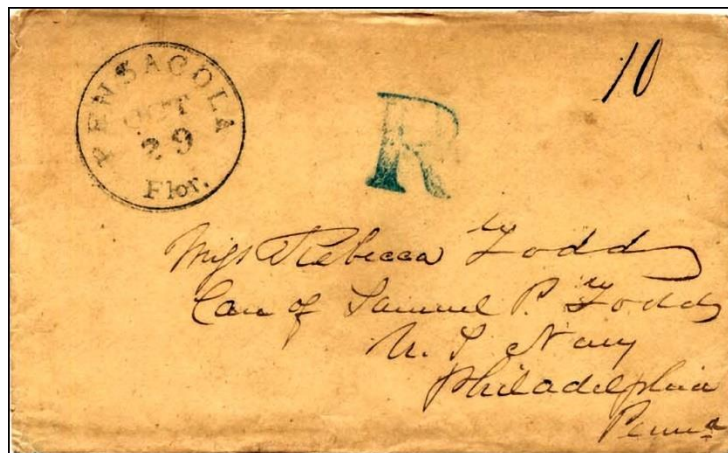 PENSACOLA
OCT
29
Flor.
10
R
Miss Rebecca Todd
Care of Samuel P. Todd
U. S. Navy
Philadelphia
Penna